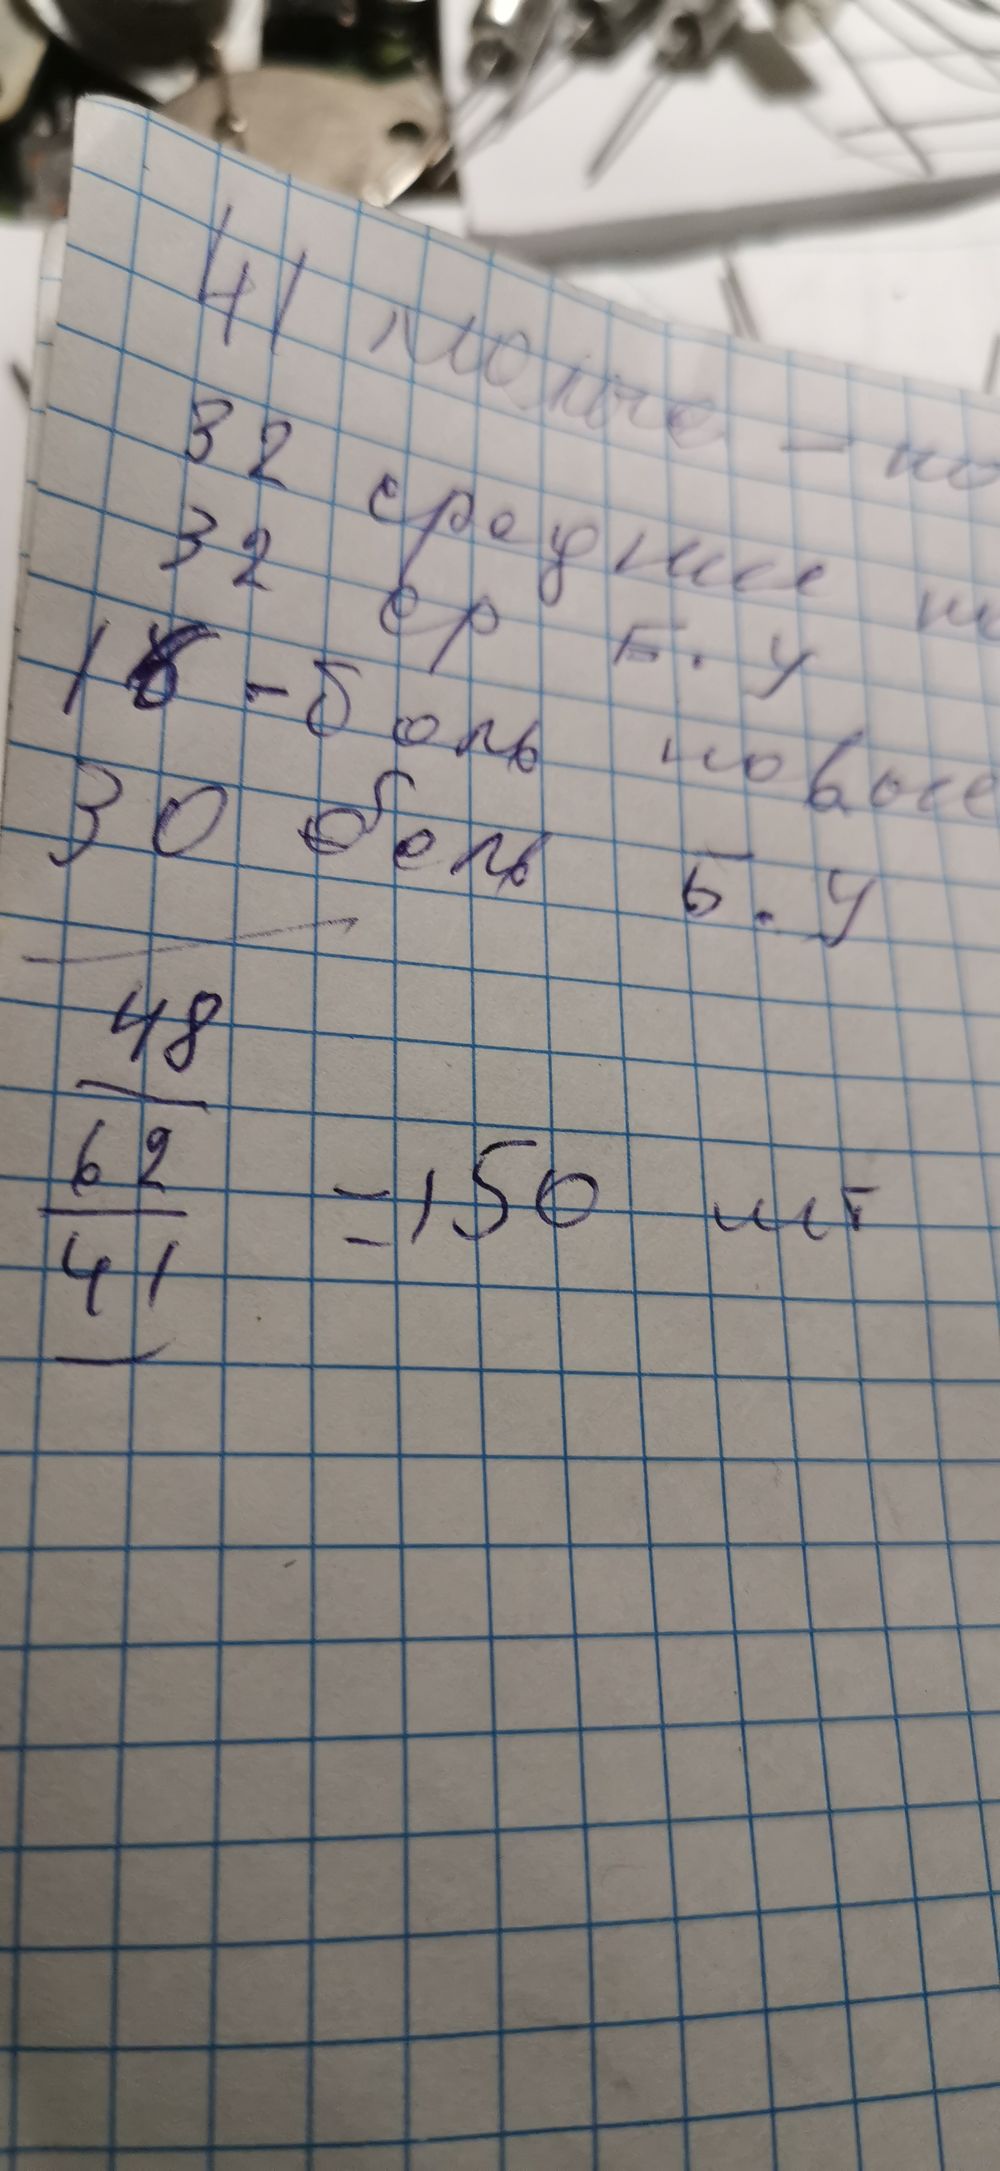 41 малые - но
32 средние но
32 ср Б.У
18 - боль новые
30 боль Б.У
48
62 = 150 шт
41